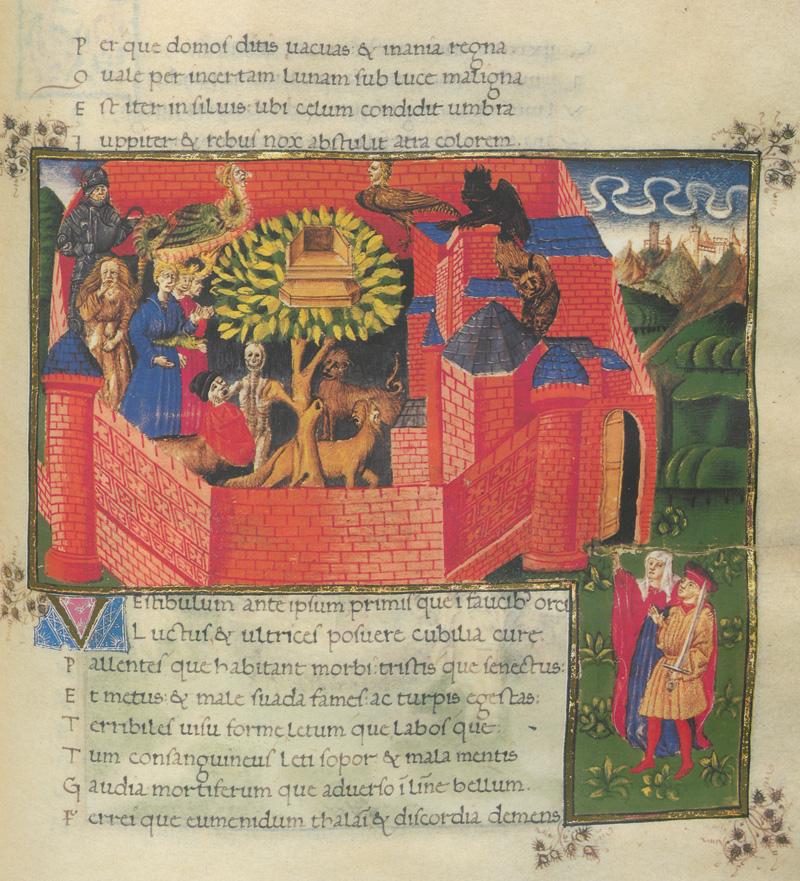 P er que domos ditis uacuas & inania regna
Q uale per incertam Lunam sub luce maligna
E st iter in siluis ubi celum condidit umbra
I uppiter & rebus nox abstulit atra colorem
V Estibulum ante ipsum primis que i faucib' orci
L uctus & ultrices posuere cubilia cure
P allentes que habitant morbi: tristis que senectus:
E t metus: & male suada fames: ac turpis egestas:
T erribiles uisu forme Letum que Labos que:
T um consanguineus Leti sopor & mala mentis
G audia mortiferum que aduerso ī līne bellum.
F errei que eumenidum thalaī & discordia demens